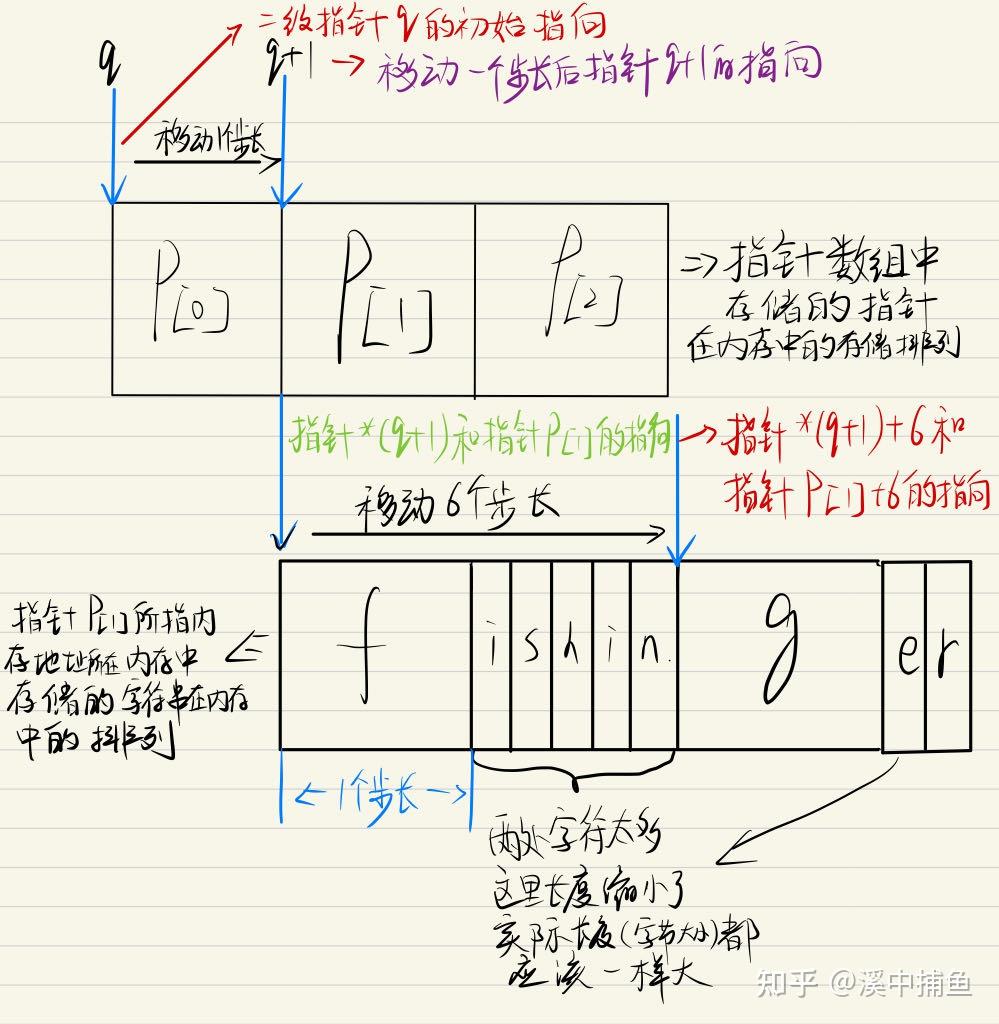 二级指针q的初始指向
q
q+1 → 移动一个步长后指针q+1的指向
移动1个步长
P[0]
P[1]
P[2]
⇒ 指针数组中
存储的指针
在内存中的存储排列
指针*(q+1)和指针P[1]的指向
→ 指针*(q+1)+6和
指针P[1]+6的指向
移动6个步长
指针P[1]所指内
存地址所在内存中
存储的字符串在内存
中的排列
f i s h i n g e r
← 1个步长 →
两处字符太多
这里长度缩小了
实际长度(字节大小)都
应该一样大
知乎 @溪中捕鱼